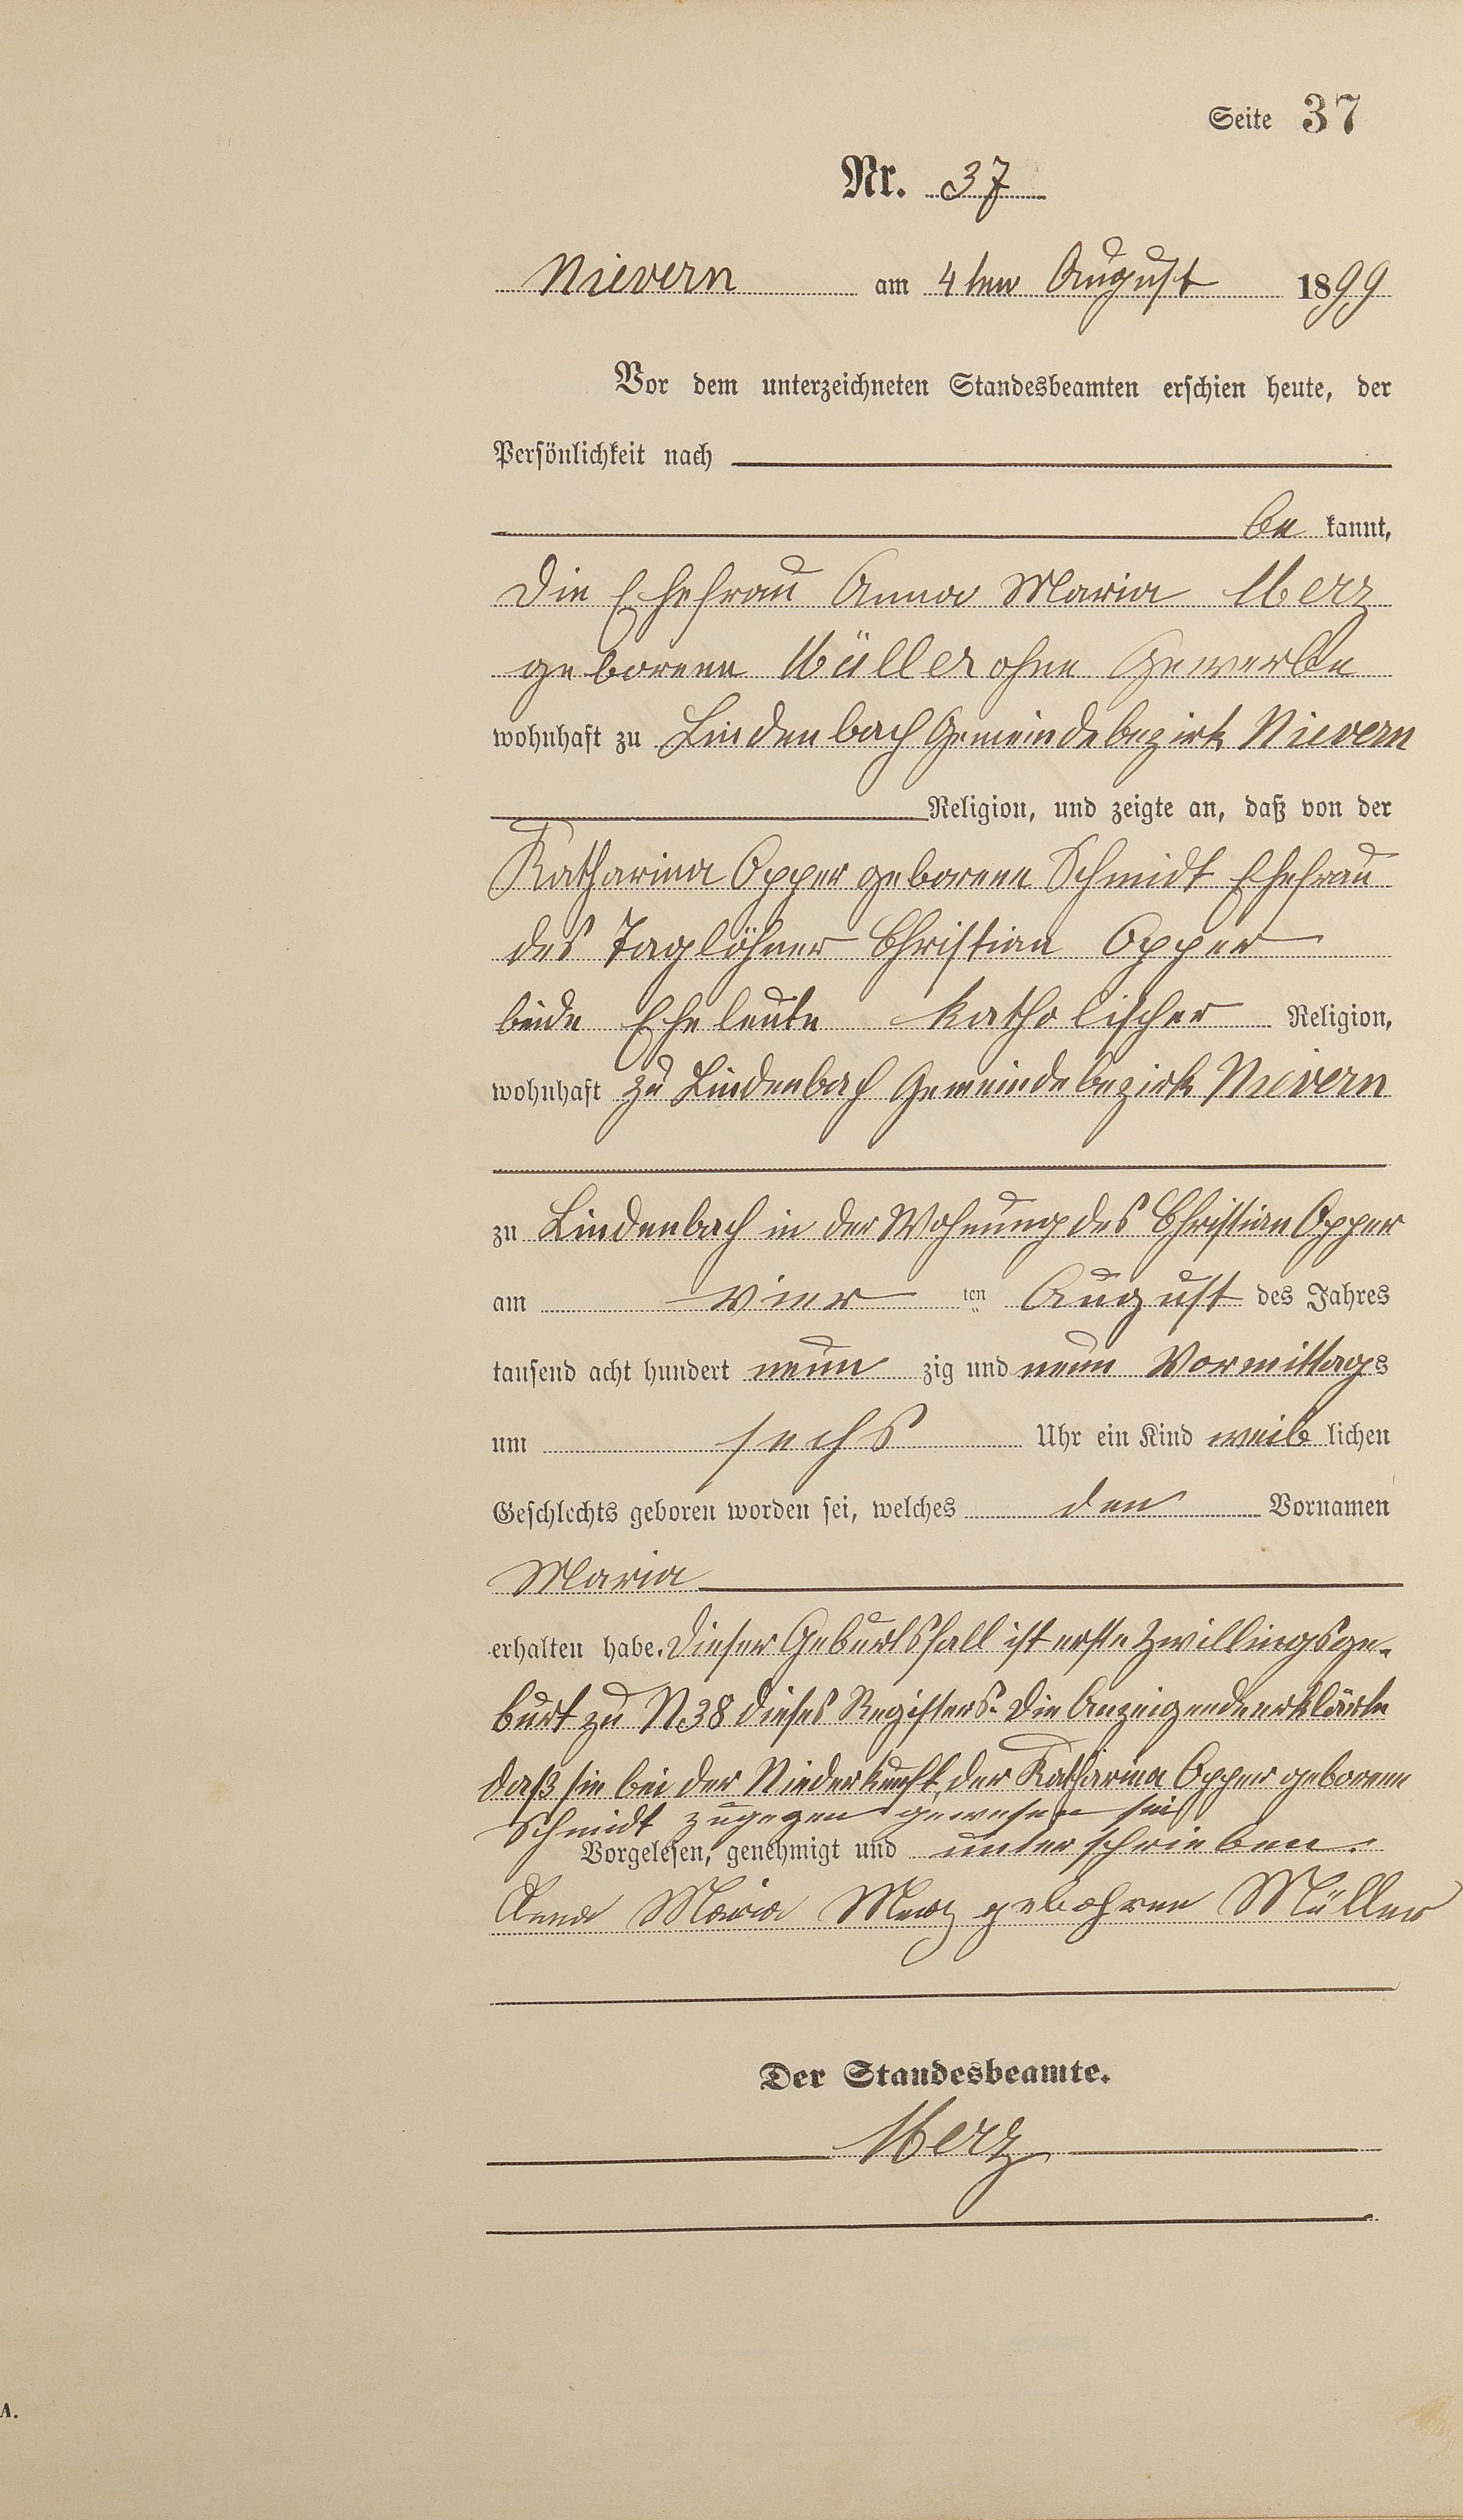 Seite 37
Nr. 37
Nievern am 4ten August 1899
Vor dem unterzeichneten Standesbeamten erschien heute, der
Persönlichkeit nach
be kannt,
Die Ehefrau Anna Maria Merz
geborene Müller ohne Gewerbe
wohnhaft zu Lindenbach Gemeindebezirk Nievern
Religion, und zeigte an, daß von der
Katharina Opper geborene Schmidt Ehefrau
des Taglöhner Christian Opper
beide Eheleute katholischer Religion,
wohnhaft zu Lindenbach Gemeindebezirk Nievern
zu Lindenbach in der Wohnung des Christian Opper
am vier ten August des Jahres
tausend acht hundert neun zig und neun Vormittags
um sechs Uhr ein Kind weib lichen
Geschlechts geboren worden sei, welches den Vornamen
Maria
erhalten habe. Dieser Geburtsfall ist erste Zwillingsge-
burt zu N 38 dieses Registers. Die Anzeigende erklärte
daß sie bei der Niederkunft der Katharina Opper geborene
Schmidt zugegen gewesen sei
Vorgelesen, genehmigt und unterschrieben.
Anna Maria Merz gebohrene Müller
Der Standesbeamte.
Merz
A.